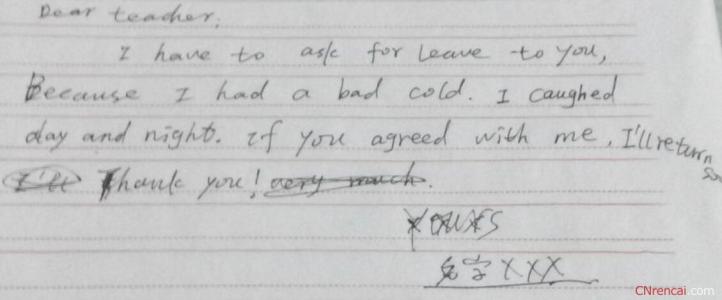 Dear teacher,
I have to ask for leave to you,
Because I had a bad cold. I caughed
day and night. if you agreed with me, I'll return
Thank you!
YOURS
名字 XXX
CNrencai.com